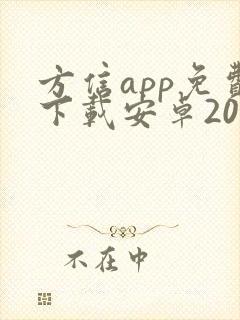 方信app免费
下载安卓20
不在中